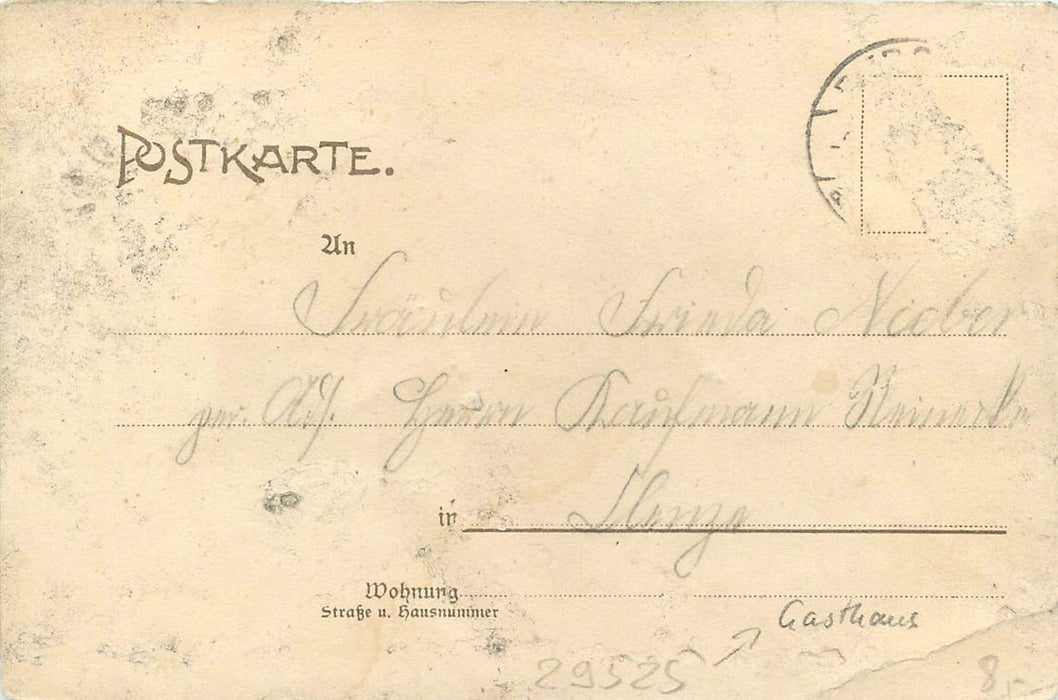 POSTKARTE.
An
Fräulein Frieda Nieber
per. Adr. Herrn Kaufmann Reinecke
in Clenze
Wohnung
Straße u. Hausnummer
Gasthaus
29525
8,-